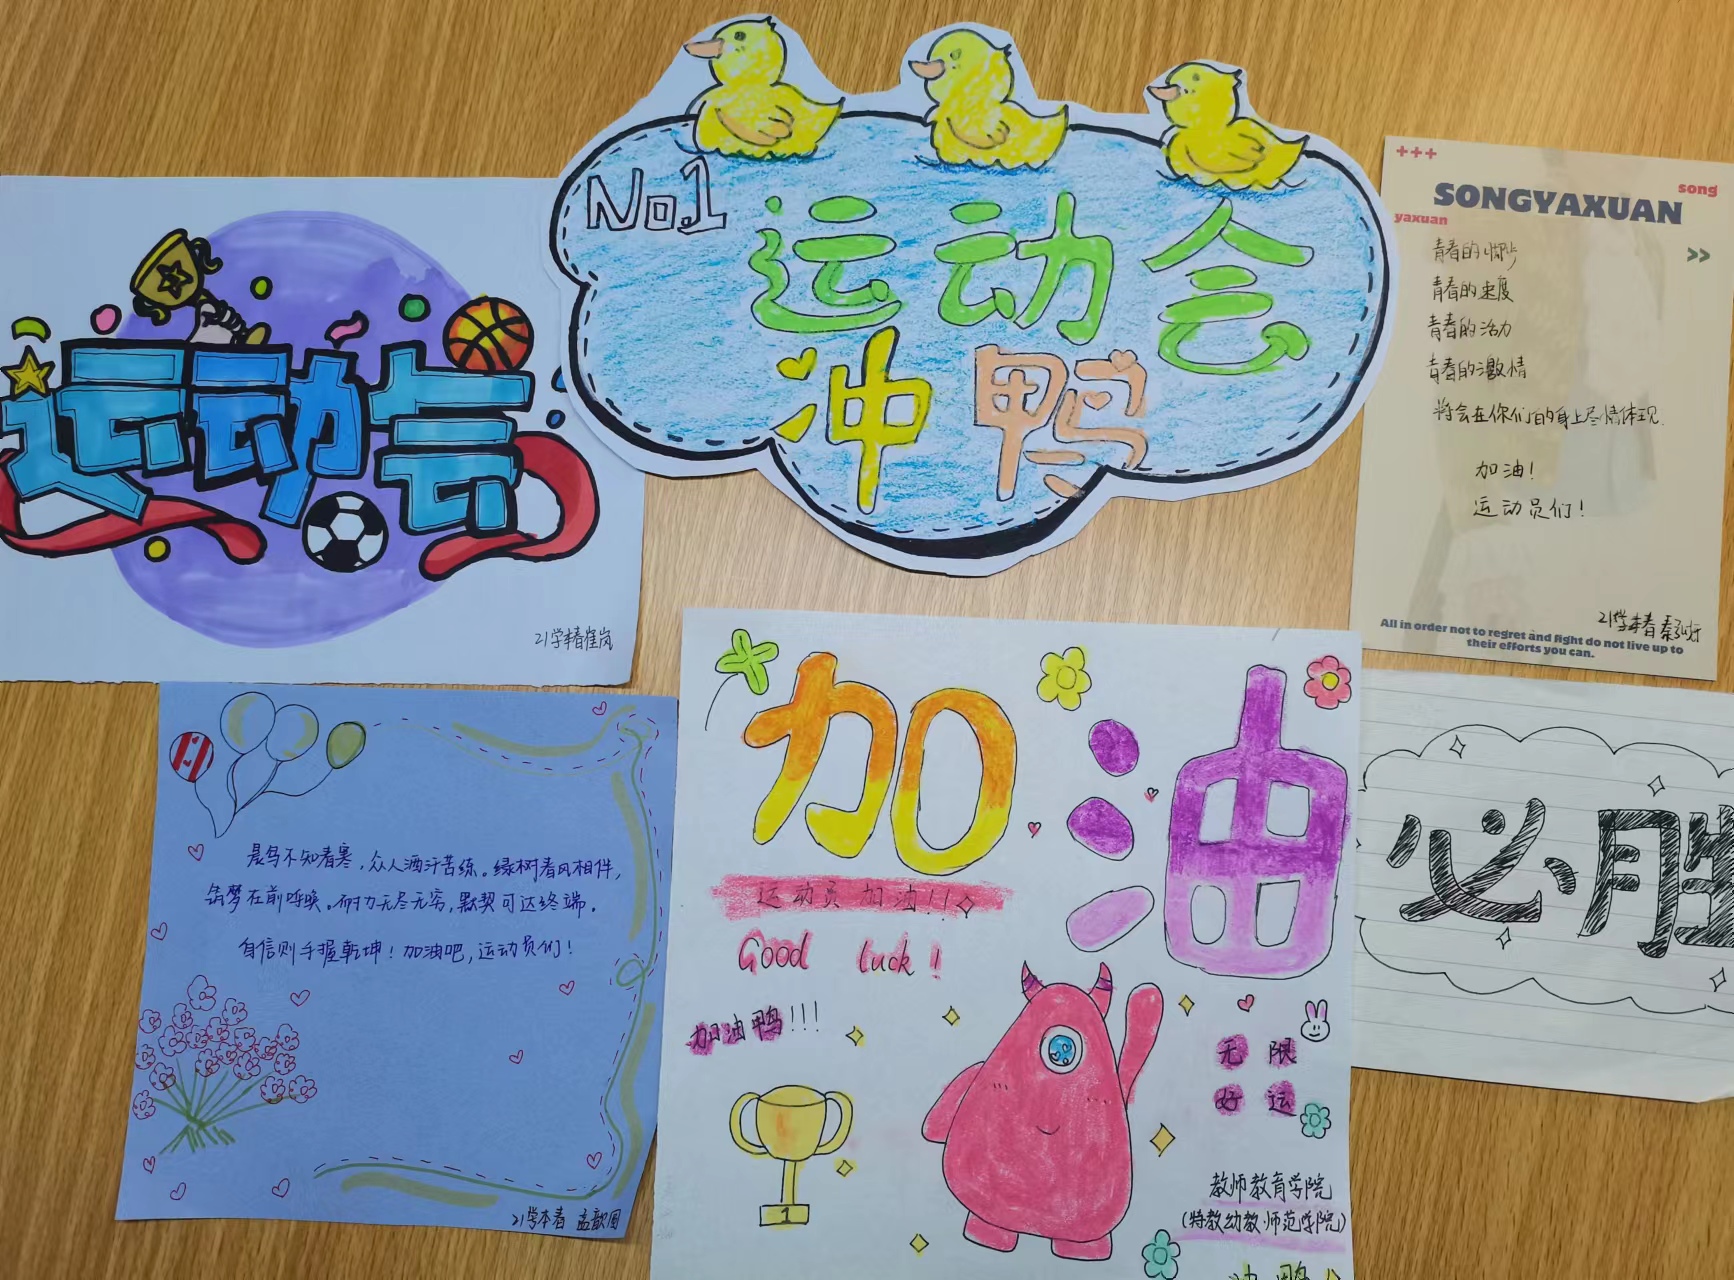 运动会
21学本春崔岚
No.1
运动会
冲鸭
+++
song
SONGYAXUAN
yaxuan
>>
青春的脚步
青春的速度
青春的活力
青春的激情
将会在你们的身上尽情体现.
加油!
运动员们!
21学本春
All in order not to regret and fight do not live up to
their efforts you can.
晨鸟不知春寒,众人洒汗苦练。绿树春风相伴,
筑梦在前呼唤。耐力无尽无穷,默契可达终端。
自信则手握乾坤!加油吧,运动员们!
21学本春 孟歆圆
加油
运动员加油!!
Good luck!
加油鸭!!!
1
无限
好运
教师教育学院
(特教幼教师范学院)
冲鸭!
必胜